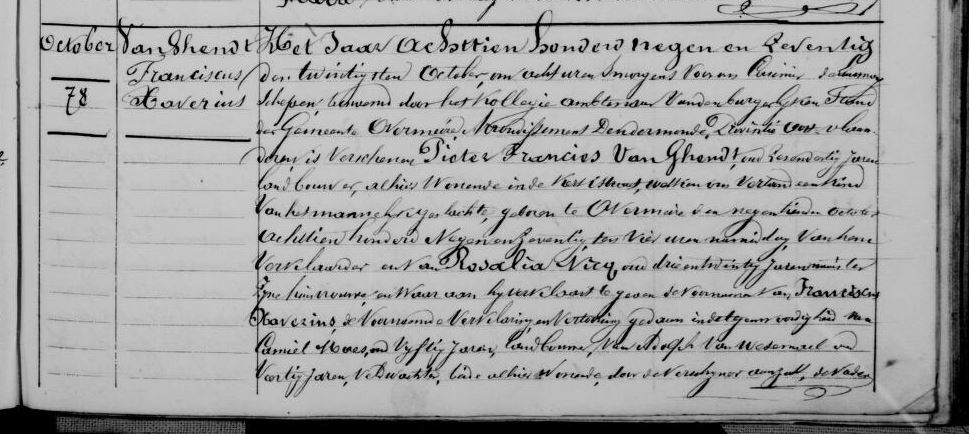 October
78
Van Ghendt
Franciscus
Xaverius
Het Jaar achttien honderd negen en Zeventig
den twintigsten October, om acht uren smorgens Voor ons Casimir
Schepen benoemd door het Kollegie ambtenaar Van den burgerlyken Stand
der Gemeente Overmeire Arrondissement Dendermonde, Provintie Oost-vlaan-
deren is Verschenen Pieter Francies Van Ghendt, oud Zesendertig Jaren
landbouwer, alhier Wonende in de Kerkstraat, welken ons Vertoond een kind
Van het mannelyk geslachte, geboren te Overmeire den negentienden october
achttien honderd Negen en Zeventig ten Vier uren namiddag, Van hem
Verklaarder en Van Rosalia Nicq oud drieentwintig Jaren
Zyne huisvrouwe en Waar aan hy verklaart te geven de Voornamen Van Franciscus
Xaverius, de Voornoemde Verklaring en Vertooning gedaan in de tegenwoordigheid van
Camiel Maes, oud Vyftig Jaren, landbouwer, Van Adolph Van Wesemael oud
Veertig Jaren, Veldwachter, beide alhier Wonende, door de Verschyner aanzoekt, de Vader